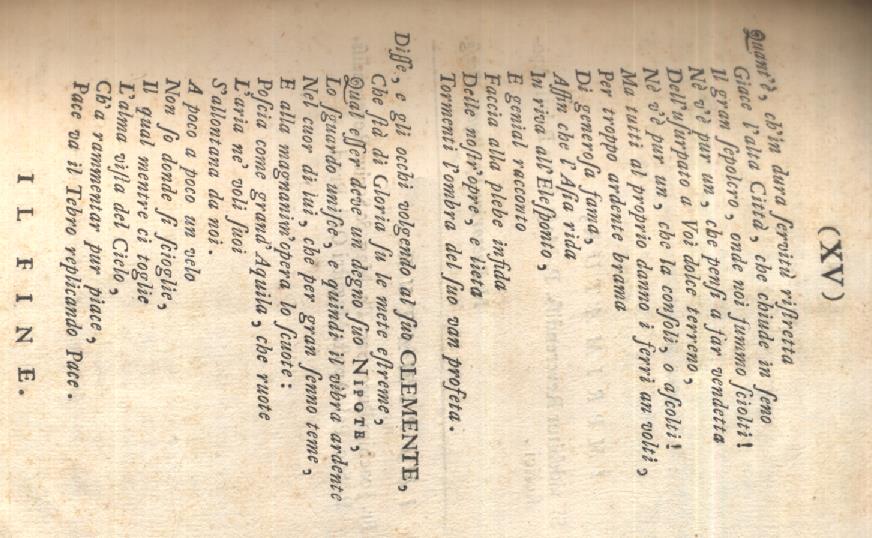 (XV)
Quant'è, ch'in dura ſervitù riſtretta
Giace l'alta Città, che chiude in ſeno
Il gran ſepolcro, onde noi ſummo ſciolti!
Nè v'è pur un, che penſi a far vendetta
Dell'uſurpato a Voi dolce terreno,
Nè v'è pur un, che la conſoli, o aſcolti!
Ma tutti al proprio danno i ferri an volti,
Per troppo ardente brama
Di generoſa fama,
Affin che l'Aſia rida
In riva all'Eleſponto,
E genial racconto
Faccia alla plebe infida
Delle noſtr'opre, e lieta
Tormenti l'ombra del ſuo van profeta.
Diſſe, e gli occhi volgendo al ſuo CLEMENTE,
Che ſià di Gloria ſu le mete eſtreme,
Qual eſſer deve un degno ſuo NIPOTE,
Lo ſguardo uniſce, e quindi il vibra ardente
Nel cuor di lui, che per gran ſenno teme,
E alla magnanim'opera lo ſcuote:
Poſcia come grand'Aquila, che ruote
L'aria ne' voli ſuoi
S'allontana da noi.
A poco a poco un velo
Non ſo donde ſi ſcioglie,
Il qual mentre ci toglie
L'alma viſta del Cielo,
Ch'a rammentar pur piace,
Pace va il Tebro replicando Pace.
IL FINE.